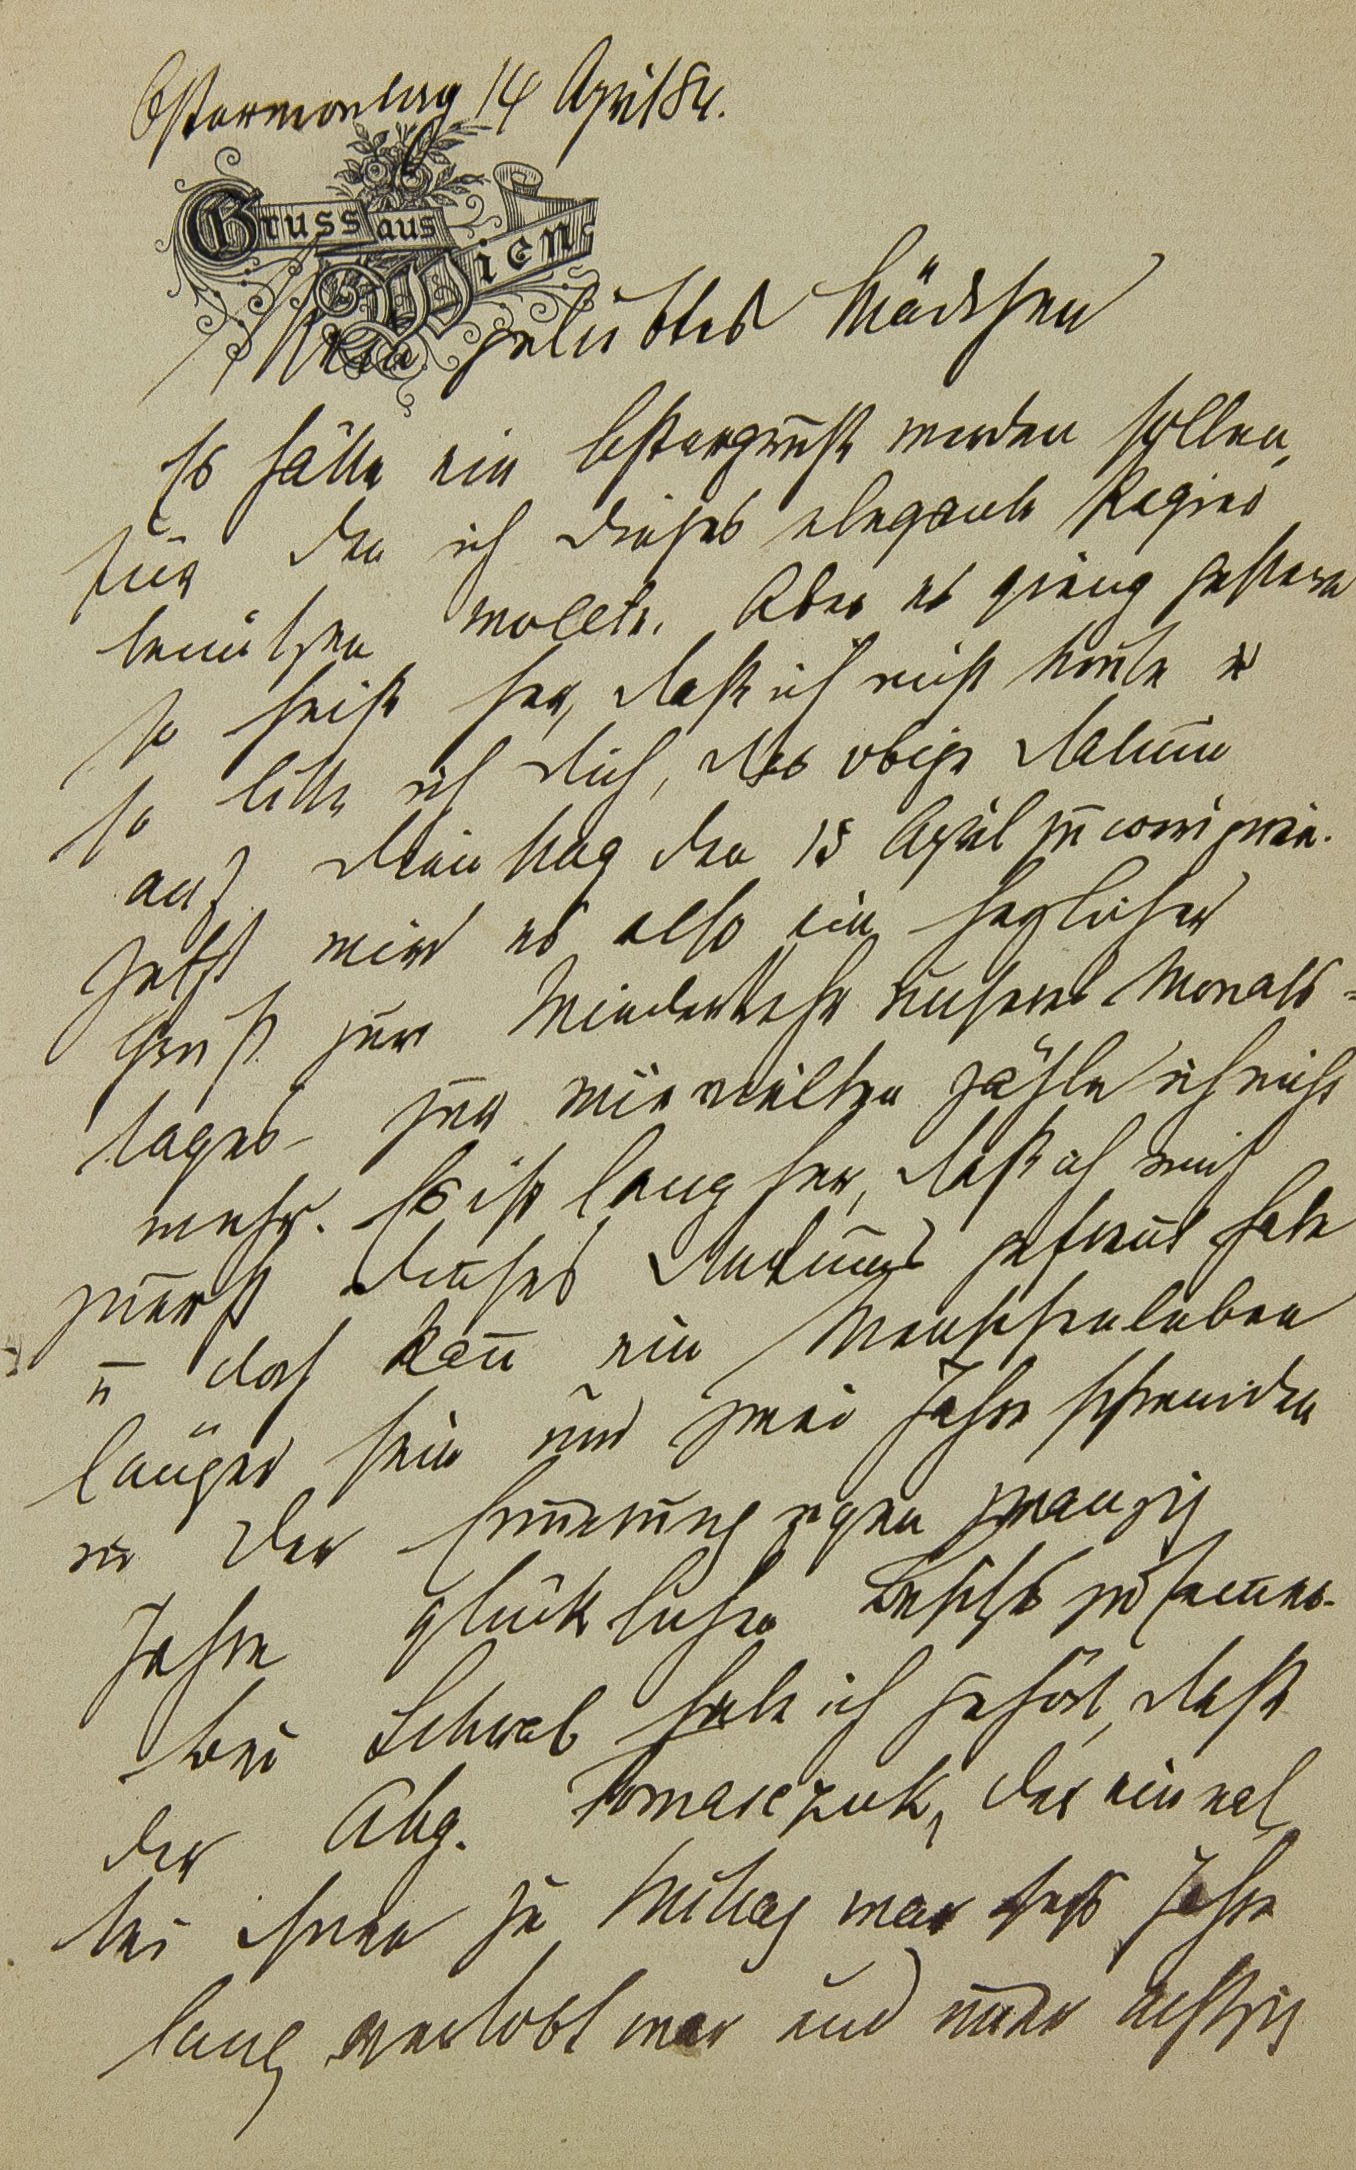 Ostermontag 14 April 84.
Gruss aus Wien
Mein geliebtes Mädchen
Es hätte ein Ostergruß werden sollen,
für den ich dieses elegante Papier
benützen wollte. Aber es gieng gestern
so heiß her, daß ich nicht konnte u
so bitte ich Dich, das obige Datum
auf Dienstag den 15 April zu corrigiren.
Jetzt wird es also ein herzlicher
Gruß zur Wiederkehr unseres Monats-
tages – zum wievielten zähle ich nicht
mehr. Es ist lang her, daß ich mich
zuerst dieses Datums gefreut habe
u doch kann ein Menschenleben
länger sein und zwei Jahre schwinden
in der Erinnerung gegen zwanzig
Jahre glücklichen Besitzes zusammen.
Bei Schwab habe ich gehört, daß
der Abg. Tomasczuk, der einmal
bei ihnen zu Mittag war sechs Jahre
lang verlobt war und unter